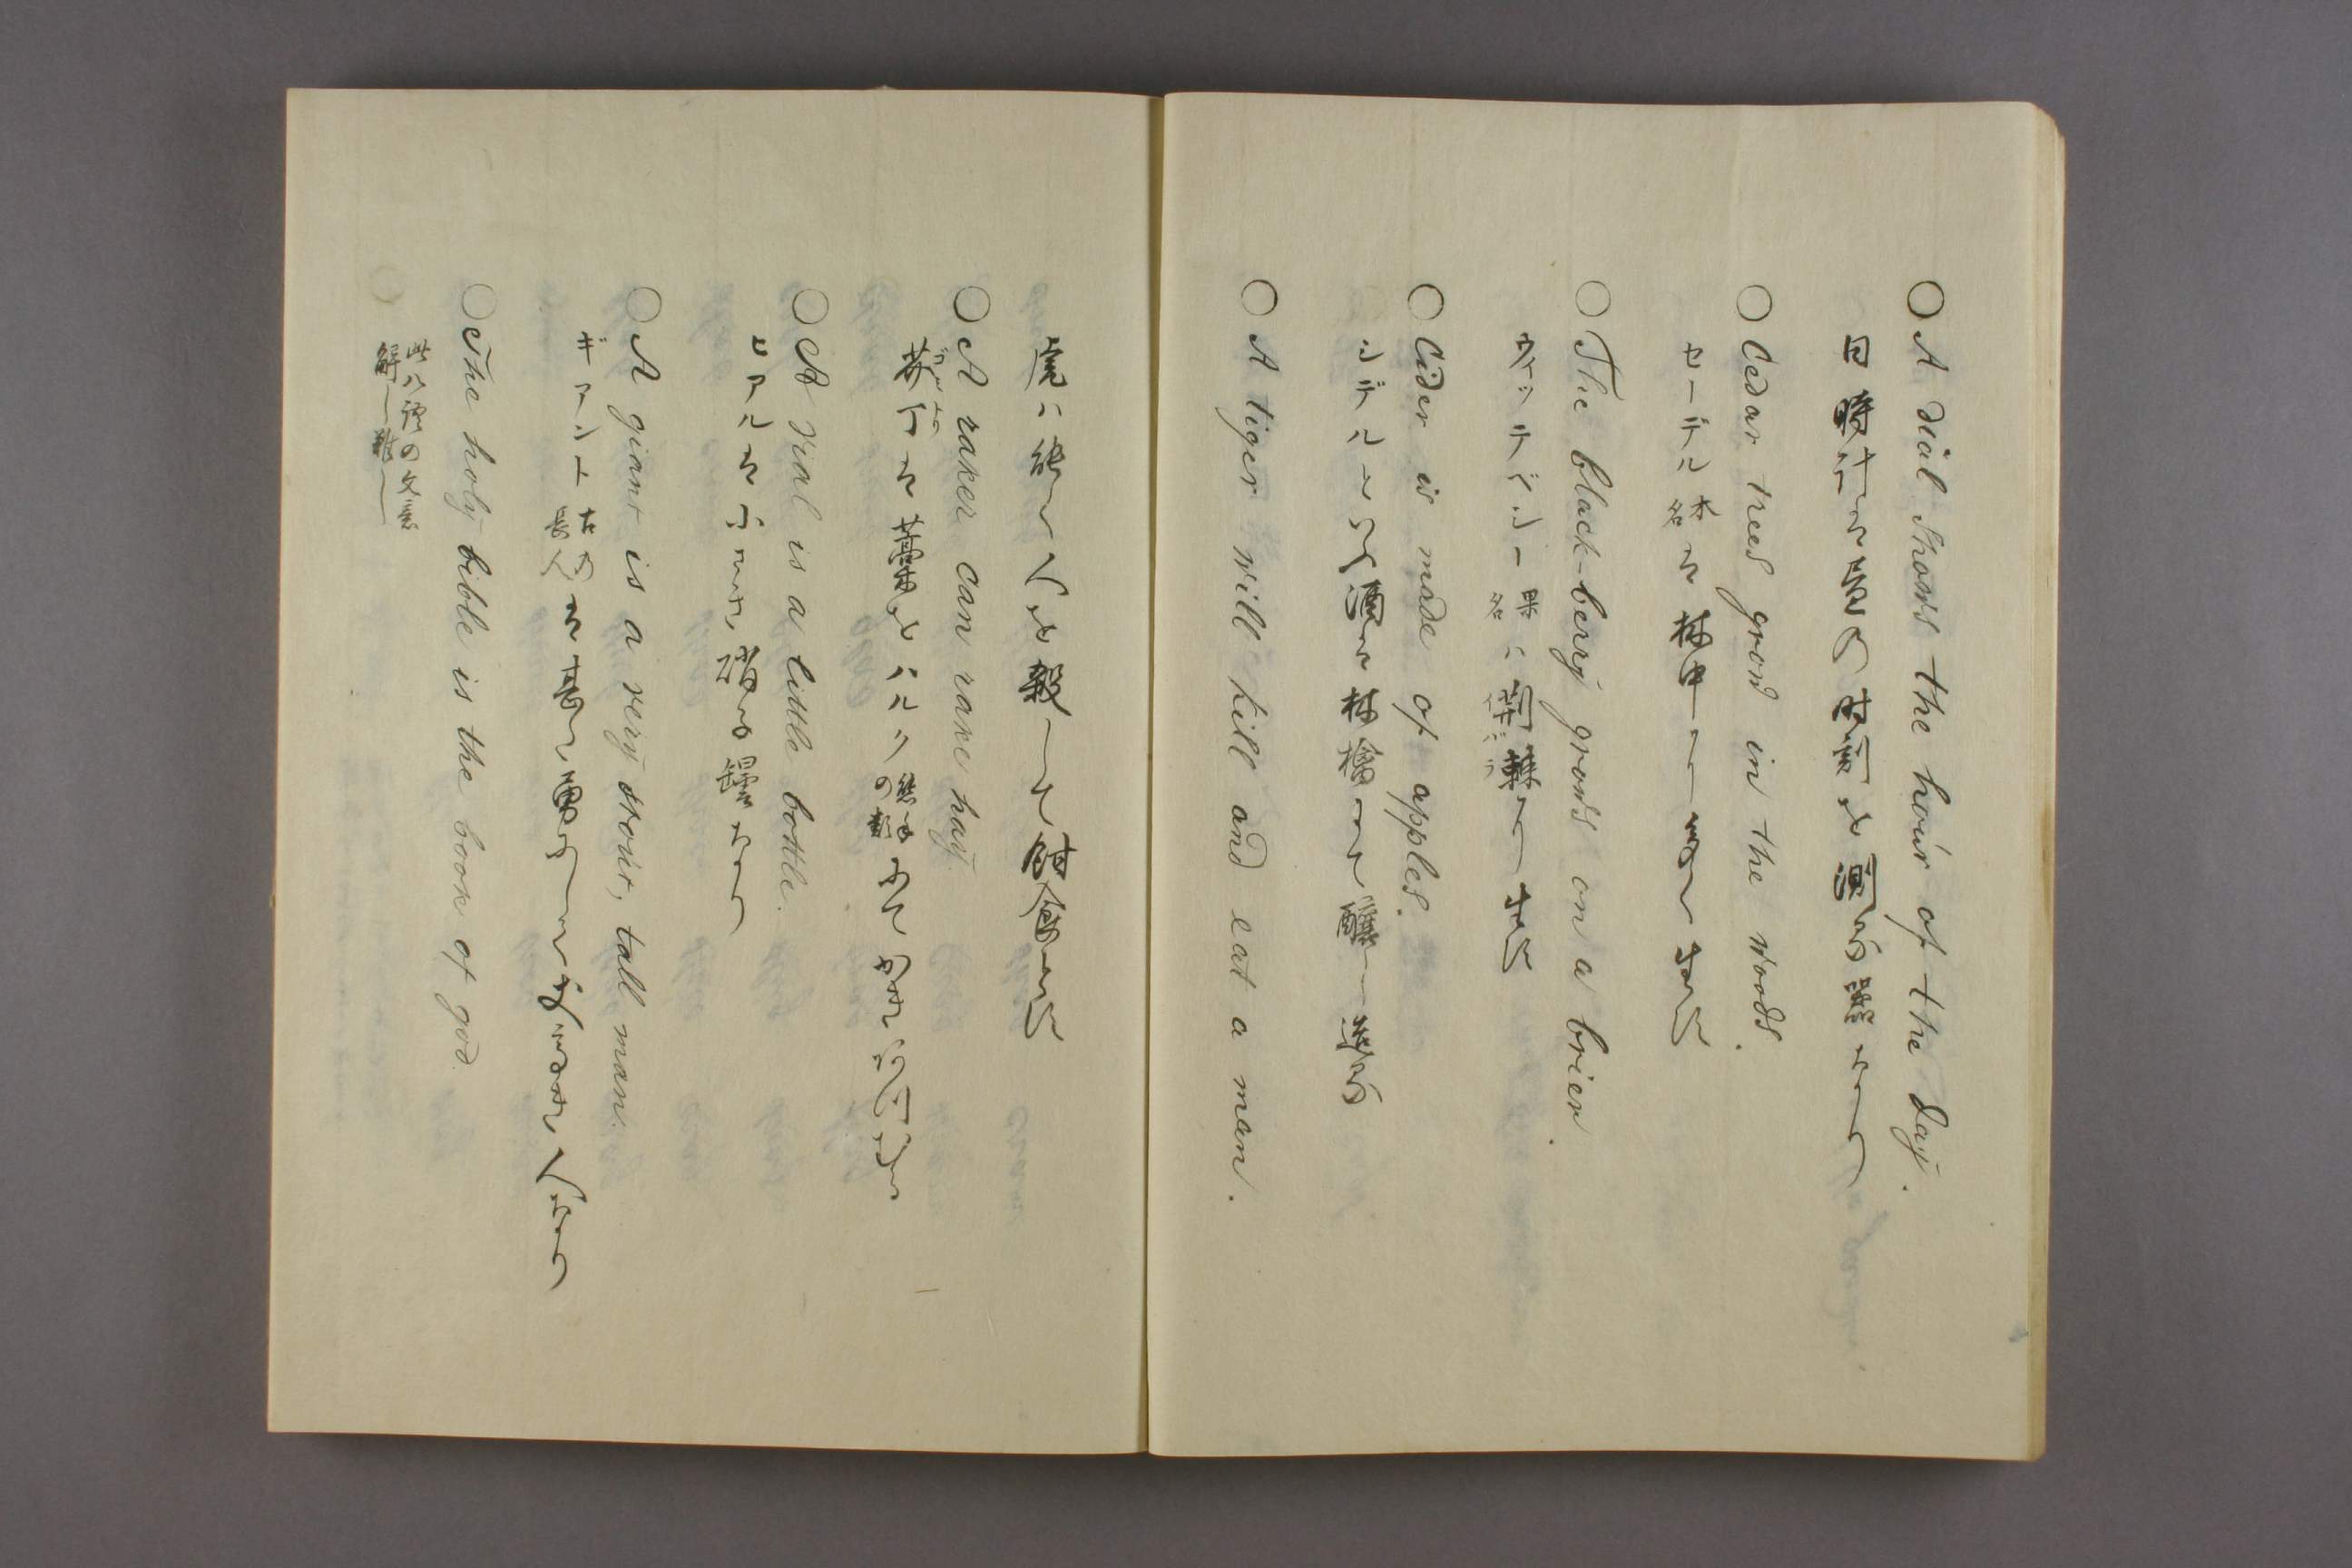 ○A dial shows the hour of the day.
日時計は昼の時刻を測る器なり
○Cedar trees grow in the woods.
セーデル木名は林中に多く生ず
○The black-berry grows on a brier.
果名は荊棘に生ず
○Cider is made of apples.
シデルといふ酒は林檎にて醸し造る
○A tiger will kill and eat a man.
虎ハ能く人を殺して食す
○A raker can rake hay.
は藁をハルク熊手の類にて
○A vial is a little bottle.
ヒアルは小き硝子罎なり
○A giant is a very stout, tall man.
ギアント古の長人は甚く勇ましく人なり
○The holy bible is the book of god.
此ハ語の文意解し難し
○